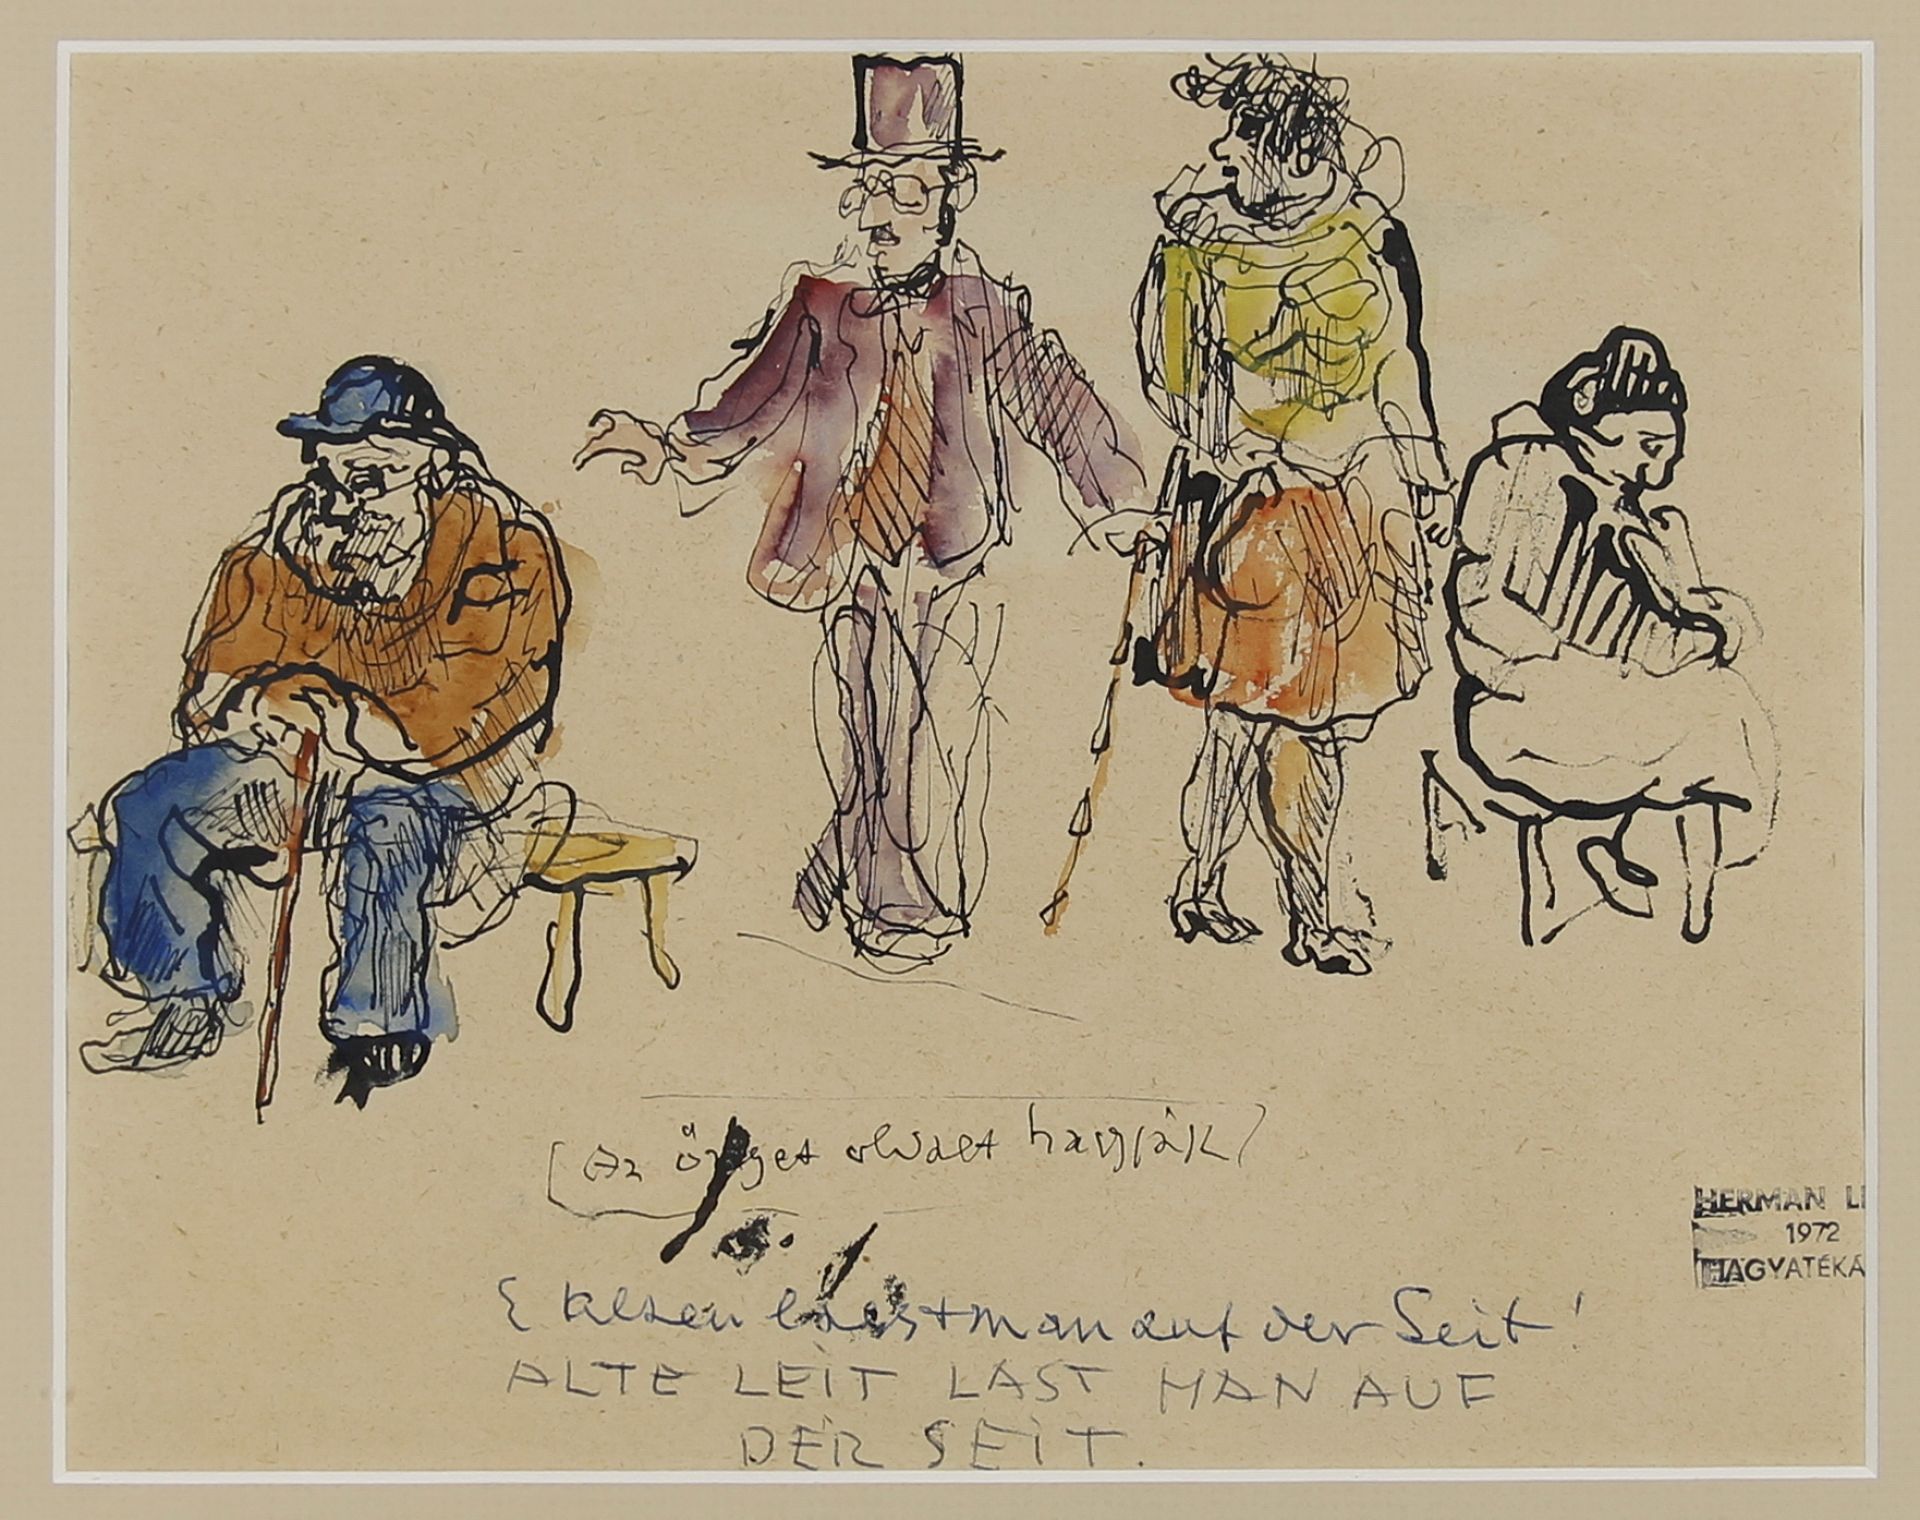 (Az öreget oldalt hagyják)
HERMAN LI
1972
HAGYATÉKA
lässt man auf der Seit!
ALTE LEIT LAST MAN AUF
DER SEIT.